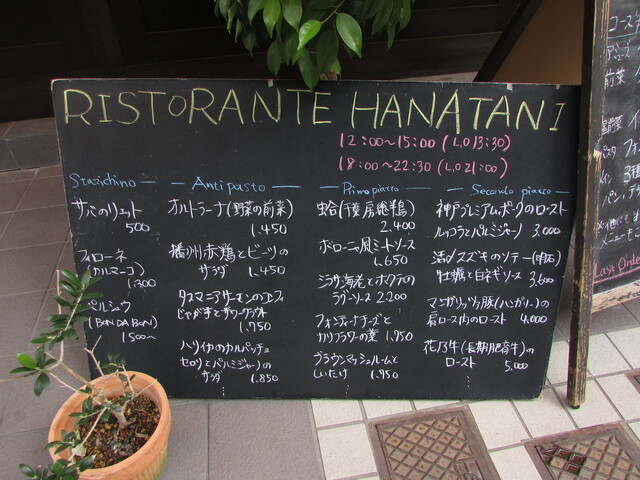 RISTORANTE HANATANI
12:00~15:00 (L.O 13:30)
18:00~22:30 (L.O 21:00)
Stuzichino
サバのリエット
500
フィローネ
1.300
ペルシュウ
(BON DA BON)
1500~
Antipasto
オルトラーナ(野菜の前菜)
1.450
播州赤鶏とビーツの
サラダ 1.450
タスマニアサーモンのエフィ
じゃが芋とザワークラウト
1.750
ハリイカのカルパッチョ
セロリとパルミジャーノの
サラダ 1.850
Primo piazzo
2.400
ボローニャ風ミートソース
1.650
シラサ海老とホタテの
ラグーソース 2.200
フォンティーナチーズと
カリフラワーの 1.750
ブラウンマッシュルームと
しいたけ 1.950
Secondo piazzo
神戸プレミアムポークのロースト
ルッコラとパルミジャーノ 3.000
活〆スズキのソテー(明石)
牡蠣と白ネギソース 3.600
マンガリッツァ豚(ハンガリー)の
肩ロース肉のロースト 4.000
花乃牛(長期肥育牛)の
ロースト 5.000
コース
前菜
Last Order